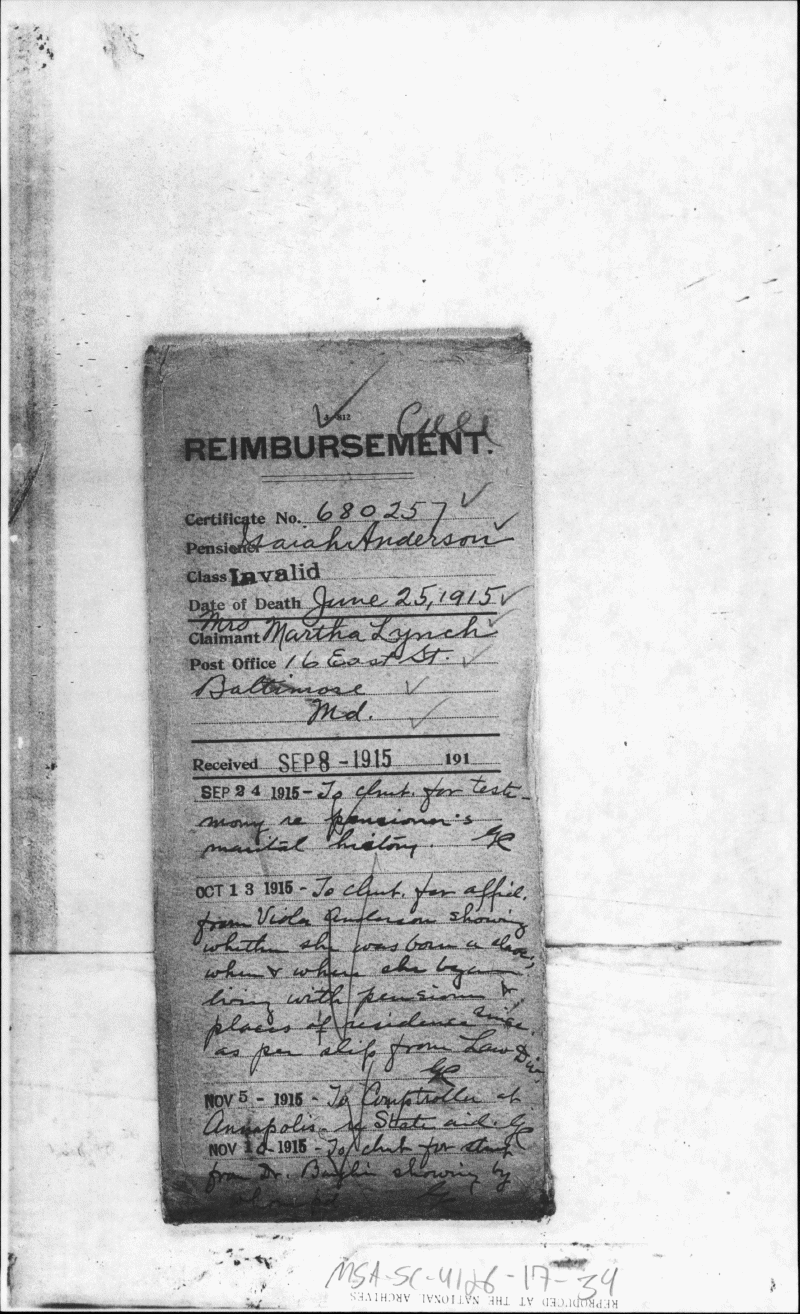 REIMBURSEMENT.
Certificate No. 680257
Pensioner Isaiah Anderson
Class Invalid
Date of Death June 25, 1915
Mrs
Claimant Martha Lynch
Post Office 16 East St.
Baltimore
Md.
Received SEP 8 - 1915 191
SEP 24 1915 - To clmt. for testi-
mony re pensioner's
marital history.
OCT 13 1915 - To clmt. for affid.
from Viola Anderson showing
whether she was born a slave,
when & where she began
living with pensioner &
places of residence since.
as per slip from Law Div.
NOV 5 - 1915 - To Comptroller at
Annapolis - re State aid.
NOV 1 - 1915 - To clmt for
from Dr. showing by
whom pd
MSA-SC-4126-17-34
REPRODUCED AT THE NATIONAL ARCHIVES